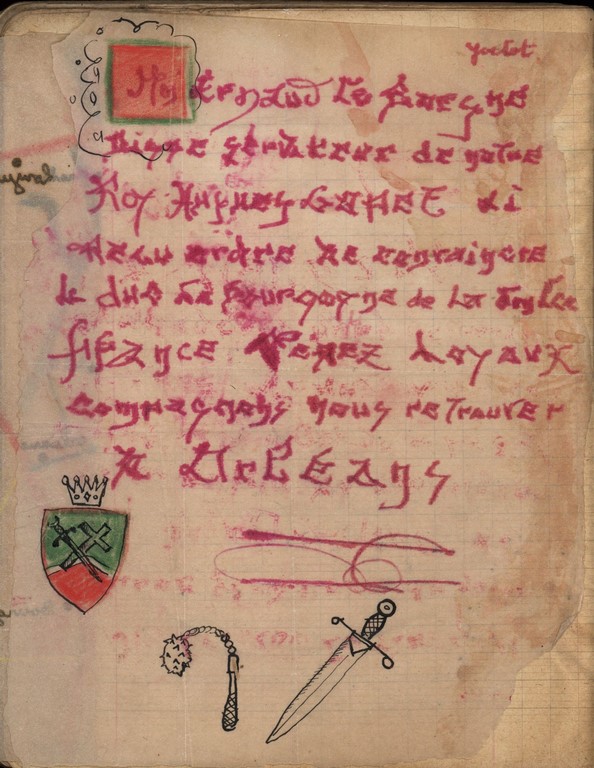 Moi Ernaud le
digne serviteur de notre
Roy Hugues CAPET ai
recu ordre de convaincre
le duc de Bourgogne de
fiance Venez Loyaux
compagnons nous retrouver
A Orléans